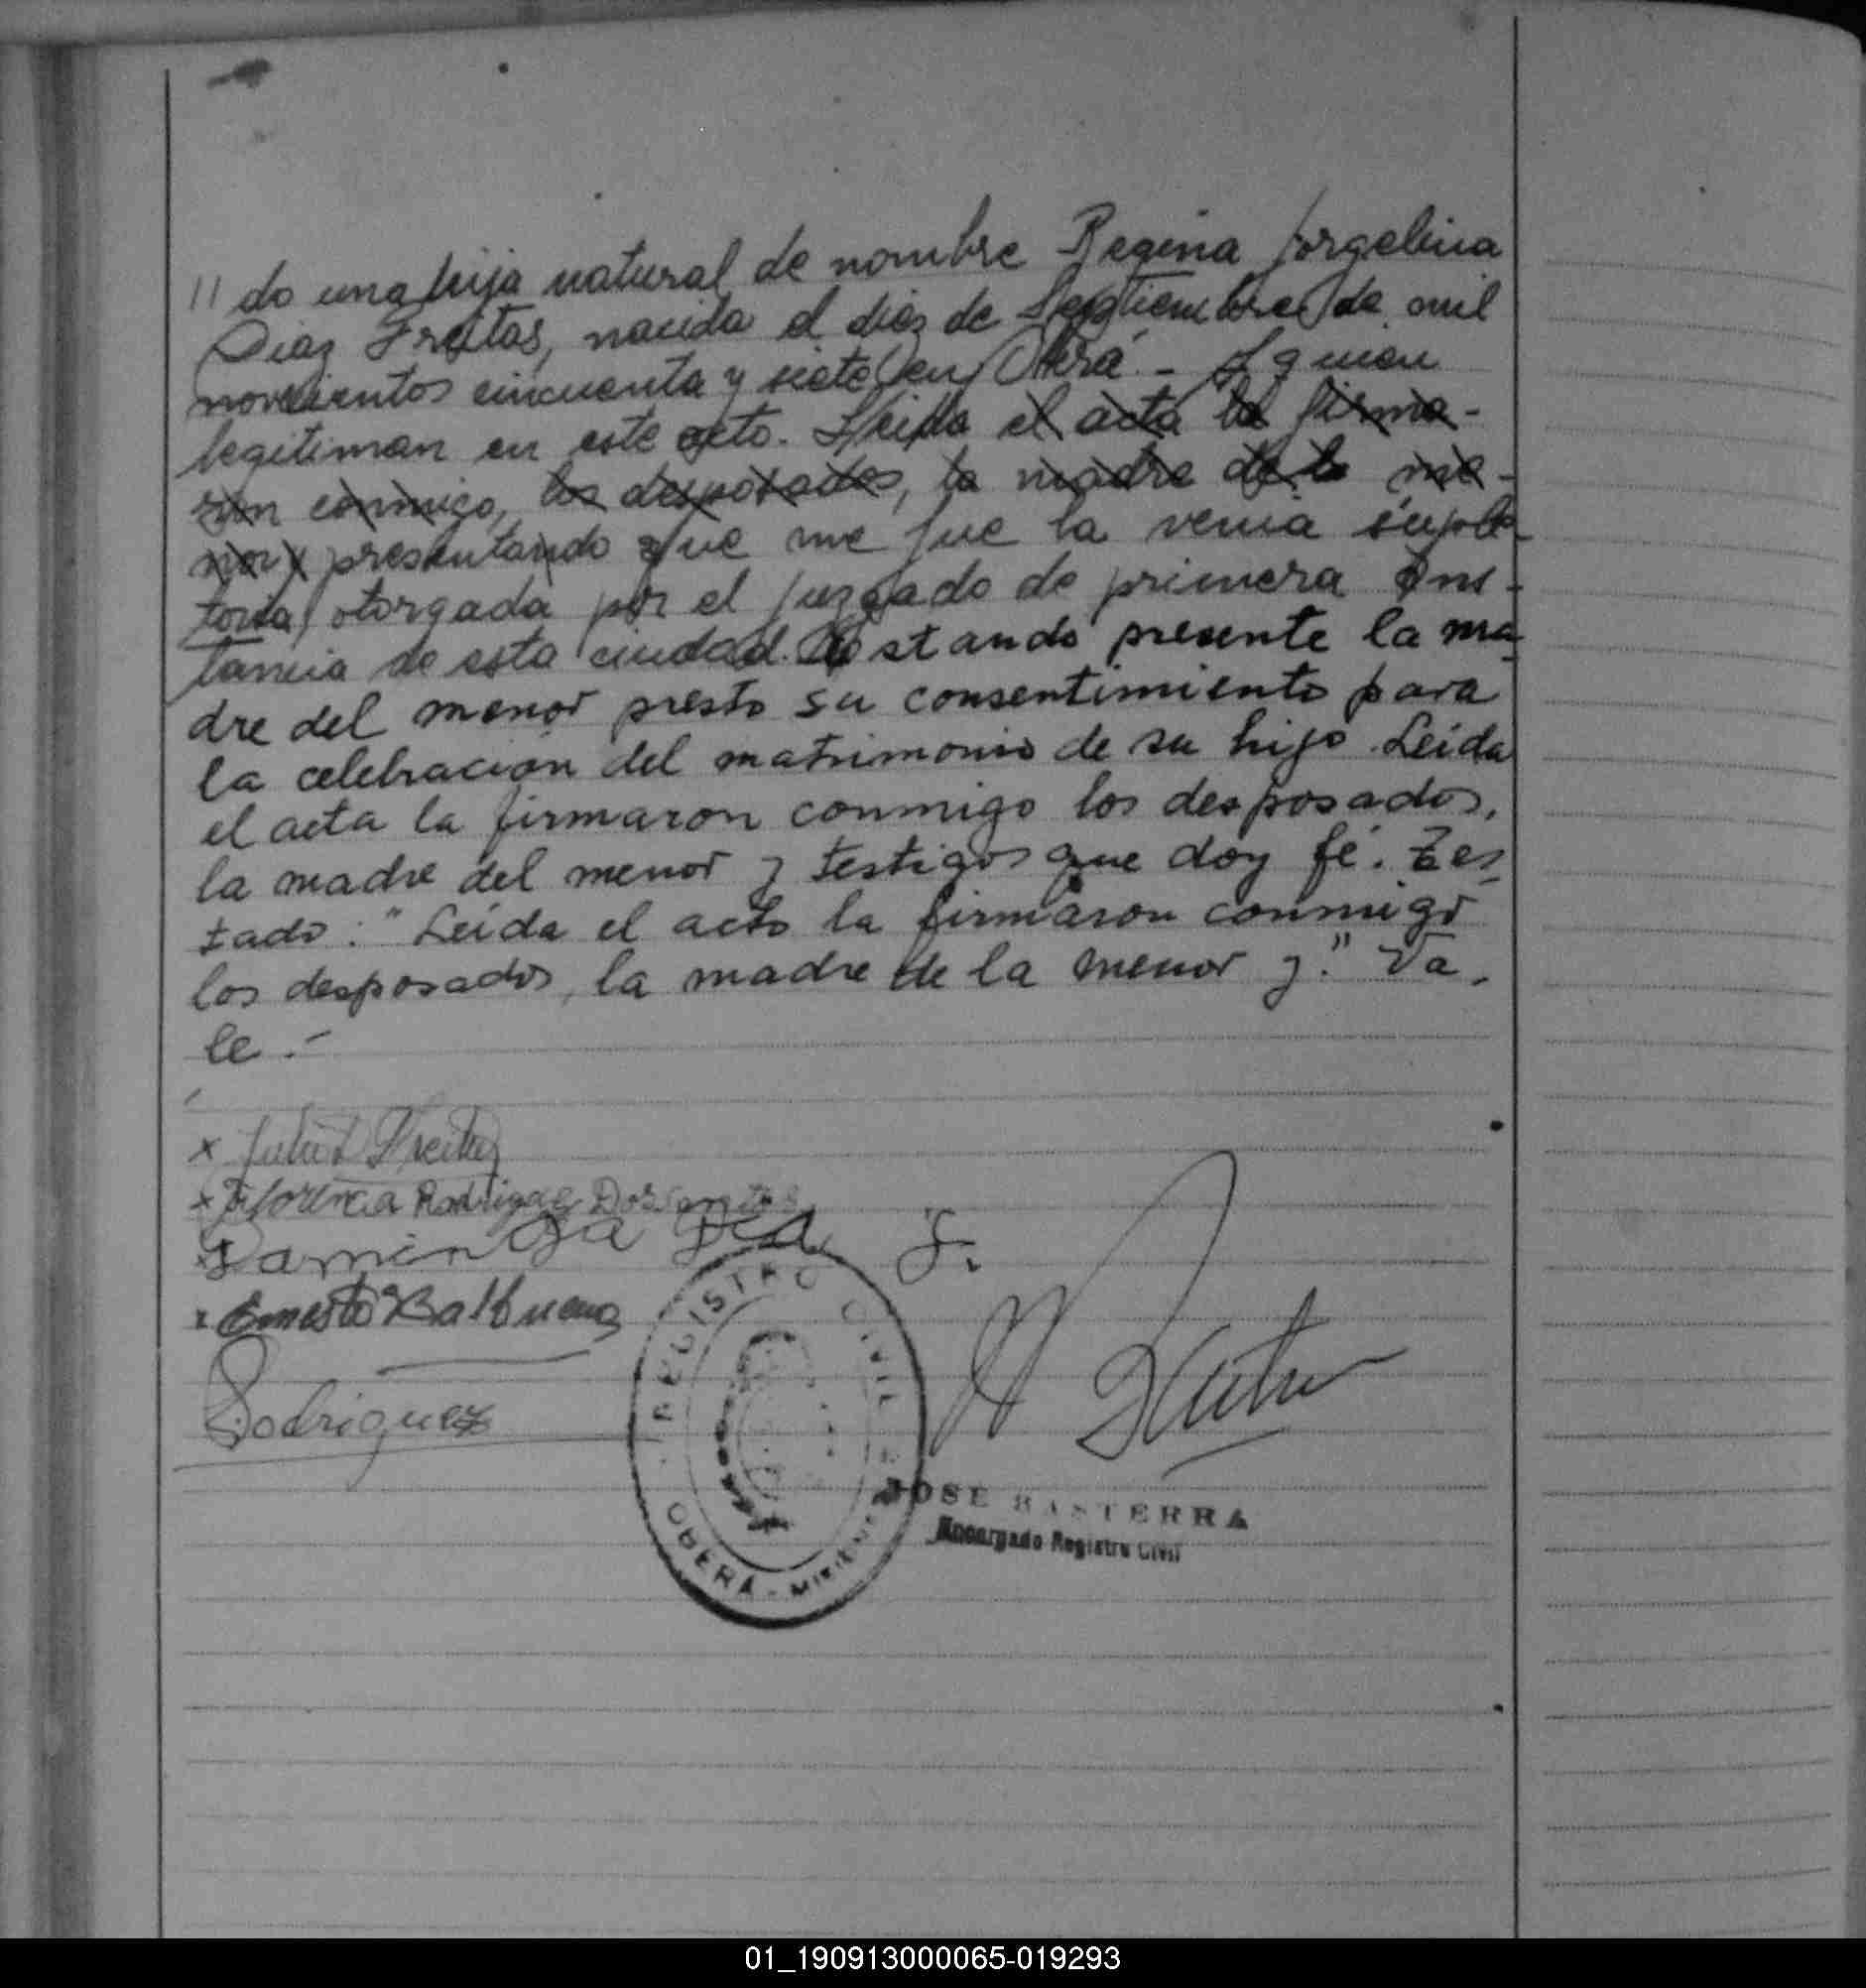 // do una hija natural de nombre Regina Jorgelina
Diaz Freitas, nacida el diez de Septiembre de mil
novecientos cincuenta y siete en Oberá.- A quien
legitiman en este acto. Leida el acta la firma-
ron conmigo, los desposados, la madre de la me-
nor y presentando que me fue la venia suple-
toria, otorgada por el juzgado de primera Ins-
tancia de esta ciudad. Estando presente la ma-
dre del menor presto su consentimiento para
la celebración del matrimonio de su hijo. Leida
el acta la firmaron conmigo los desposados,
la madre del menor y testigos que doy fé. Tes-
tado: "Leida el acto la firmaron conmigo
los desposados, la madre de la menor y." Va-
le.-
x Freitas
x Rodriguez Dos Santos
x
x Ernesto Balbuena
Rodriguez
REGISTRO CIVIL
OBERÁ - MISIONES
JOSE BASTERRA
Encargado Registro Civil
01_190913000065-019293